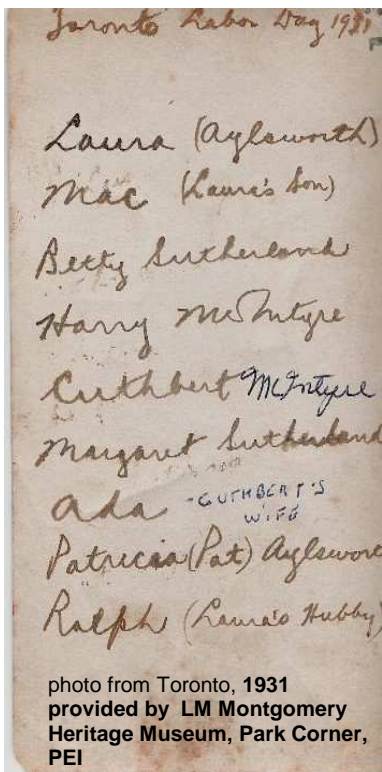 Toronto Labor Day 1931
Laura (Aylsworth)
Mac (Laura's Son)
Betty Sutherland
Harry McIntyre
Cuthbert McIntyre
Margaret Sutherland
Ada - CUTHBERT'S
WIFE
Patricia (Pat) Aylswort
Ralph (Laura's Hubby)
photo from Toronto, 1931
provided by LM Montgomery
Heritage Museum, Park Corner,
PEI